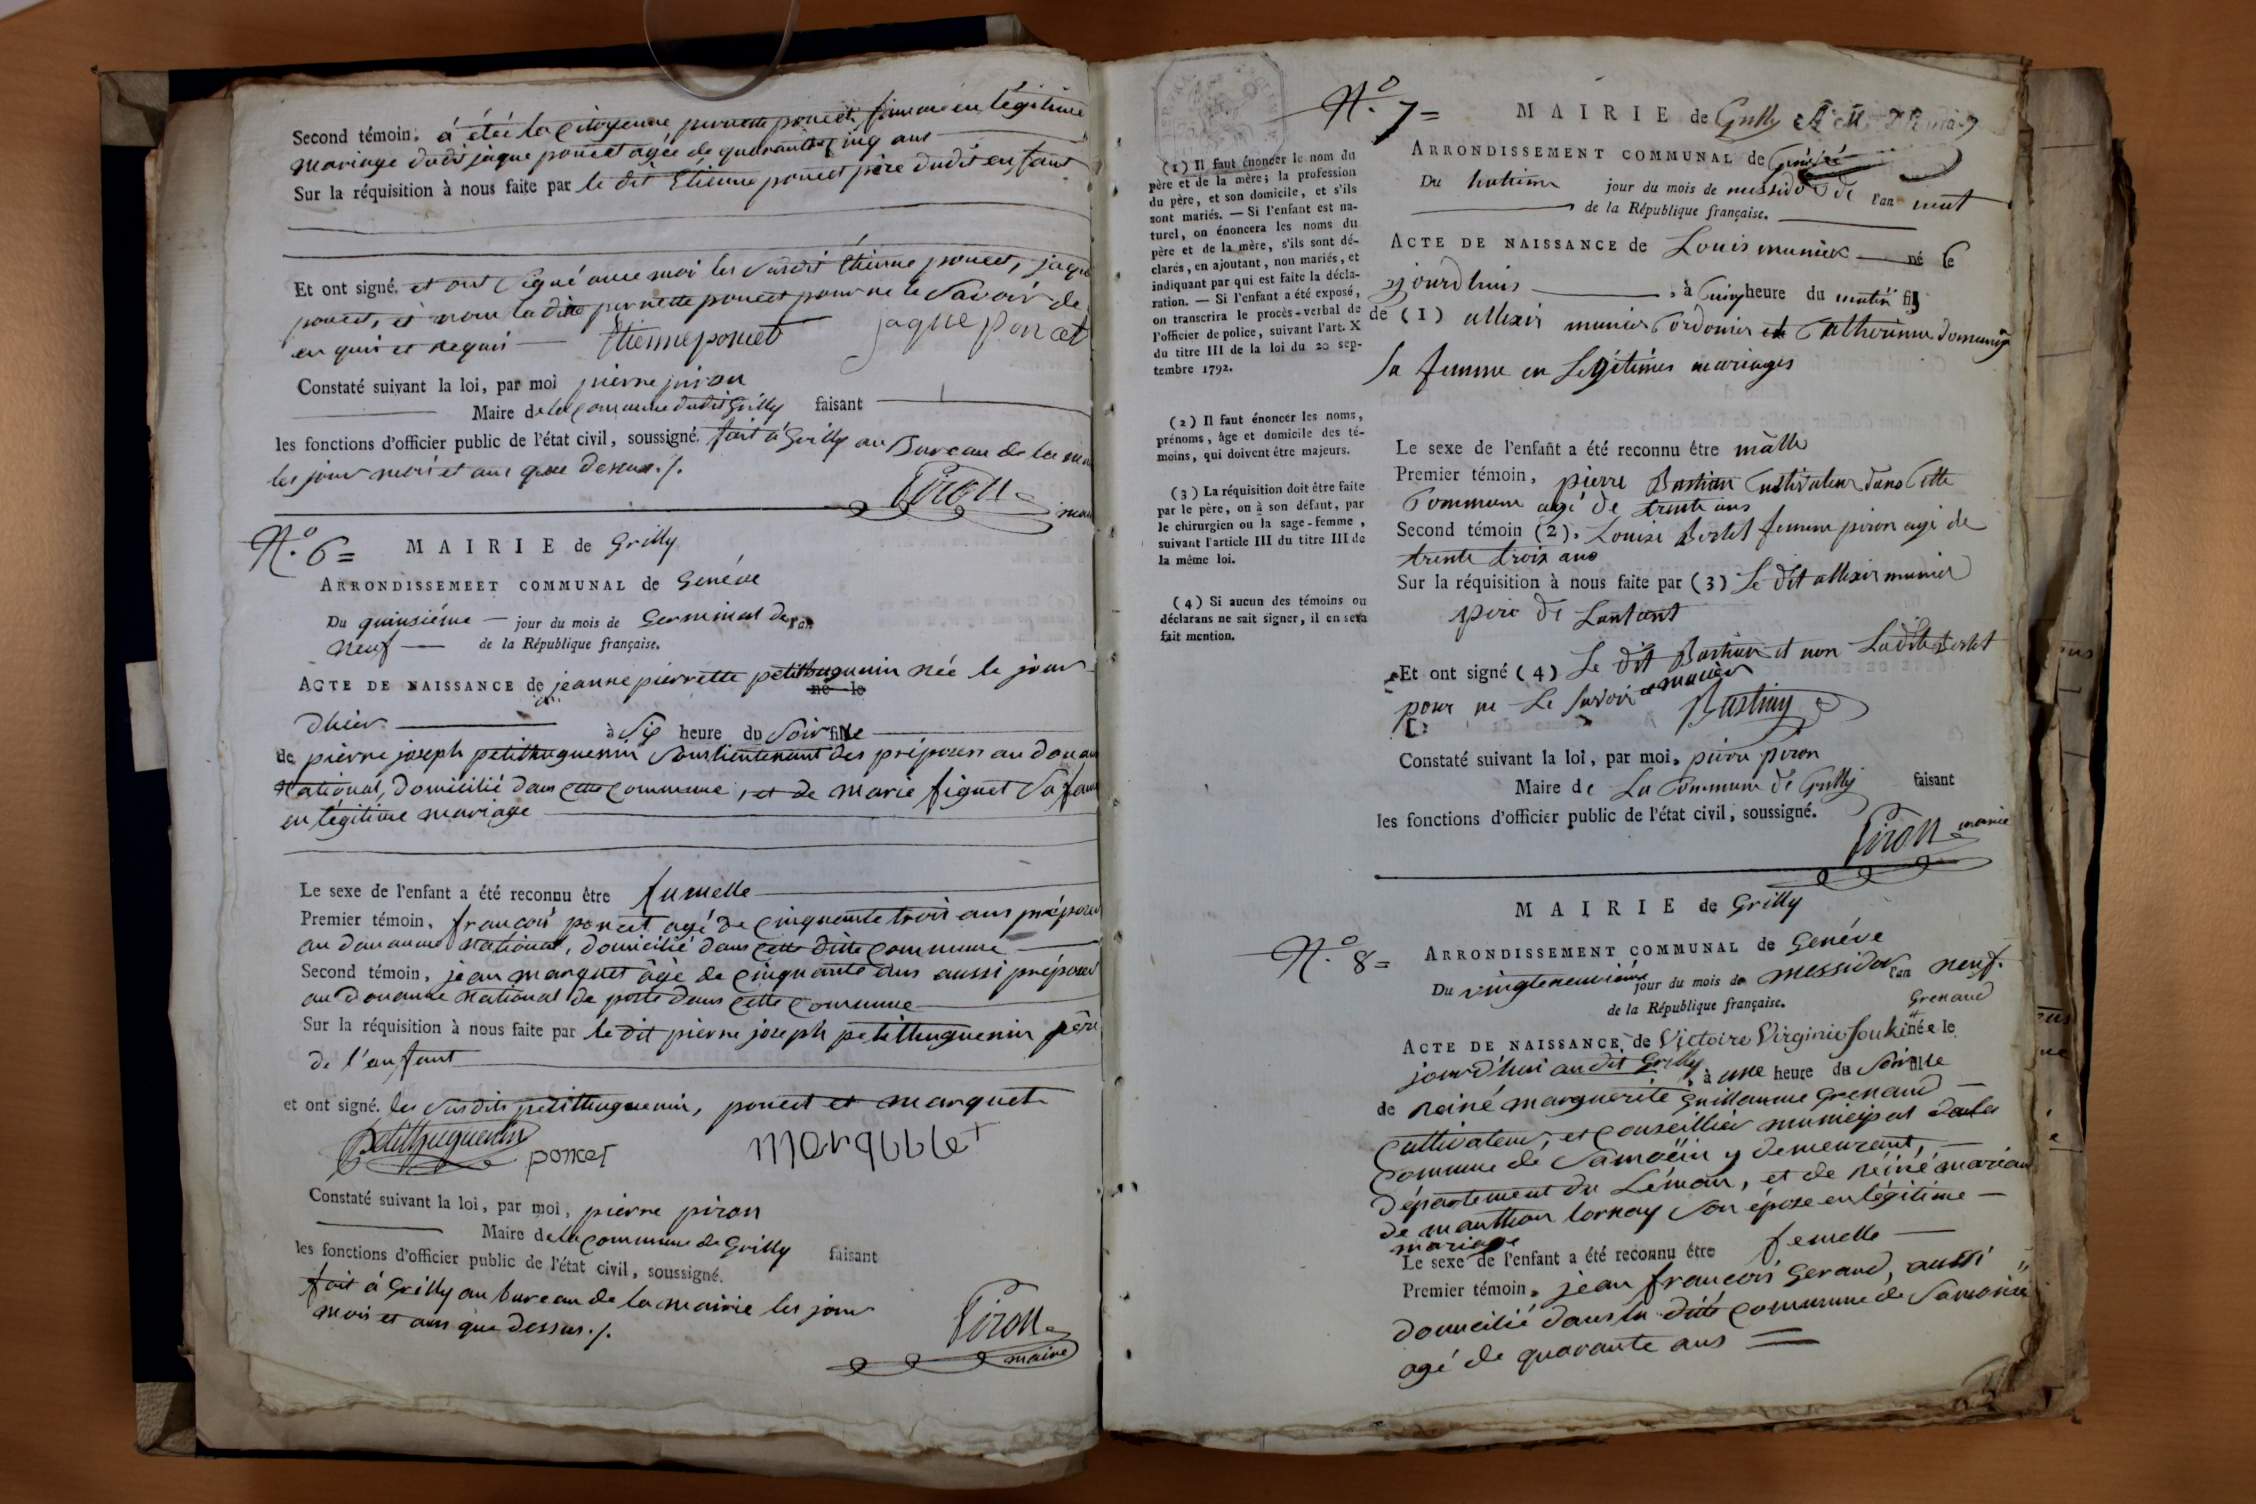 Second témoin. à étée la Citoyenne pernette poncet, femme en légitime
mariage dudit jaque poncet agée de quarante cinq ans
Sur la réquisition à nous faite par le dit Etienne poncet père dudit enfant
Et ont signé. et ont signé avec moi les susdit Etienne poncet, jaque
poncet, et non la ditte pernette poncet pour ne le savoir de
en quis et requis
Etienne poncet
jaque poncet
Constaté suivant la loi, par moi pierre piron
Maire de la Commune dudit Grilly faisant
les fonctions d'officier public de l'état civil, soussigné. fait à Grilly au Bureau de la
les jour mois et ans que dessus ./.
Piron
N.º 6=
MAIRIE de Grilly
ARRONDISSEMEET COMMUNAL de Genéve
Du quinsiéme jour du mois de Germinal de l'an
neuf de la République française.
ACTE DE NAISSANCE de jeanne pierrette petithuguenin née le jour
né le
dhier à Six heure du Soir fille
de pierre joseph petithuguenin Souslieutenant des préposés au
National, domicilié dans cette Commune, et de marie figuet Sa
en légitime mariage
Le sexe de l'enfant a été reconnu être fumelle
Premier témoin. francois poncet agé de Cinquante trois ans préposé
au douanne National, domicilié dans cette ditte Commune
Second témoin, jean marquet âgé de Cinquante ans aussi préposé
au douanne National de poste dans cette Commune
Sur la réquisition à nous faite par le dit pierre joseph petithuguenin père
de l'enfant
et ont signé. les Susdits petithuguenin, poncet et marquet
petithuguenin
poncet
Constaté suivant la loi, par moi, pierre piron
Maire de la Commune de Grilly faisant
les fonctions d'officier public de l'état civil, soussigné.
fait à Grilly au bureau de la mairie les jour
mois et ans que dessus ./.
Piron
maire
N.º 7=
MAIRIE de Grilly
ARRONDISSEMENT COMMUNAL de
Du huitieme jour du mois de messidor de l'an neuf
de la République française.
ACTE DE NAISSANCE de Louis munier né le
jourdhuis, à Cinq heure du matin fils
de (1) allexis munier Cordonier et Catherinne
sa femme en Legitimes mariages
Le sexe de l'enfant a été reconnu être malle
Premier témoin, pierre Bastian Cultivateur dans Cette
Commune agé de trente ans
Second témoin (2). Louise Bertet femme piron agé de
trente trois ans
Sur la réquisition à nous faite par (3) Le dit allexis munier
pere de Lanfant
Et ont signé (4) Le dit Bastian et non Ladite Bertet
pour ne Le savoir et munier
Bastian
Constaté suivant la loi, par moi, pierre piron
Maire de La Commune de Grilly faisant
les fonctions d'officier public de l'état civil, soussigné.
Piron
maire
(1) Il faut énoncer le nom du
père et de la mère; la profession
du père, et son domicile, et s'ils
sont mariés. — Si l'enfant est na-
turel, on énoncera les noms du
père et de la mère, s'ils sont dé-
clarés, en ajoutant, non mariés, et
indiquant par qui est faite la décla-
ration. — Si l'enfant a été exposé,
on transcrira le procès-verbal de
l'officier de police, suivant l'art. X
du titre III de la loi du 20 sep-
tembre 1792.
(2) Il faut énoncer les noms,
prénoms, âge et domicile des té-
moins, qui doivent être majeurs.
(3) La réquisition doit être faite
par le père, on à son défaut, par
le chirurgien ou la sage-femme,
suivant l'article III du titre III de
la même loi.
(4) Si aucun des témoins ou
déclarans ne sait signer, il en sera
fait mention.
N.º 8=
MAIRIE de Grilly
ARRONDISSEMENT COMMUNAL de Genéve
Du vingtneuviéme jour du mois de messidor l'an neuf.
de la République française.
Grenaud
ACTE DE NAISSANCE, de Victoire Virginie née le
jourd'hui audit Grilly, à une heure du Soir fille
de Reiné marguerite Guillaume Grenaud
Cultivateur, et Conseillier municipal dela
Commune de Samoëin y demeurant,
département du Léman, et de Reiné
de manthon lornay Son épose en légitime
mariage
Le sexe de l'enfant a été reconnu être femelle
Premier témoin. jean francois Gerand, aussi
domicilié dans la ditte Commune de
agé de quarante ans